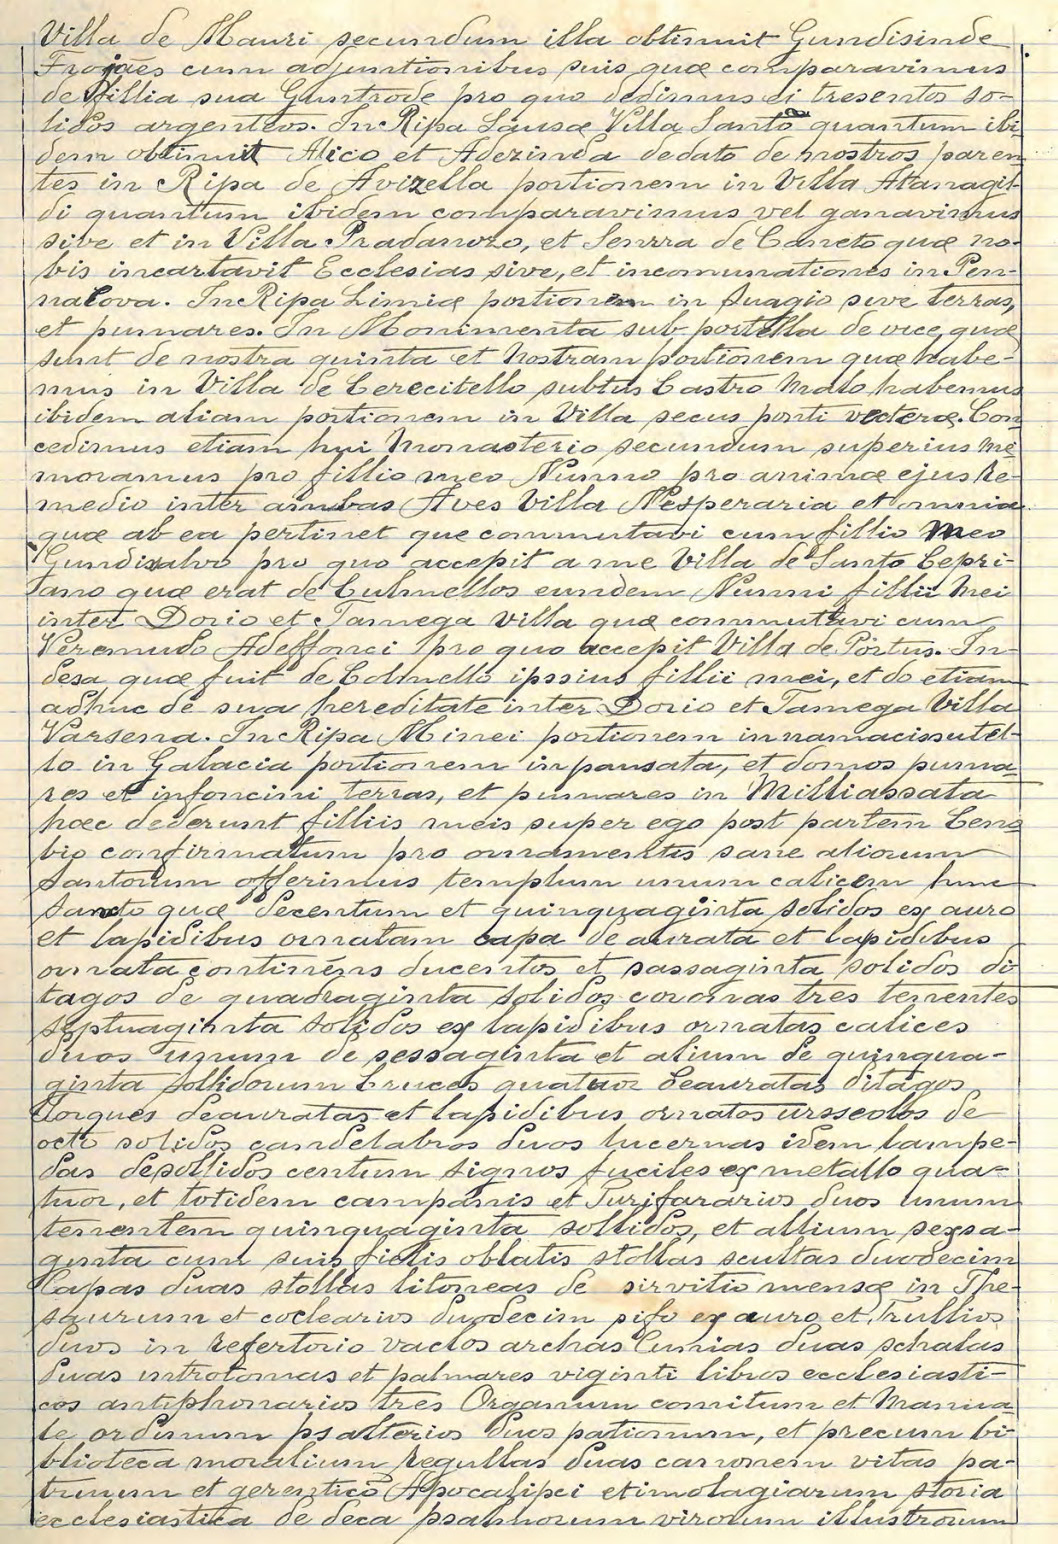 Villa de Mauri secundum illa obtinuit Gundisinde
Frojaes cum adjuntionibus suis quæ comparavimus
de fillia sua Guntrode pro quo dedimus ei tresentos so-
lidos argenteos. In Ripa Sausæ Villa Santa quantum ibi
dem obtinuit Alico et Adezinda dedato de nostros paren
tes in Ripa de Avizella portionem in Villa Atanagil-
di quantum ibidem comparavimus vel ganavimus
sive et in Villa Pradanozo, et Senrra de Caneto quæ no-
bis incartavit Ecclesias sive, et incomunationes in Pen-
nalova. In Ripa Limiæ portionem in fuagio sive terras,
et pumares. In Monimenta sub, portella de vice, quæ
sunt de nostra quinta et nostram portionem quæ habe-
mus in Villa de Cerecitello subtus Castro malo habemus
ibidem aliam portionem in Villa secus ponti vecteræ. Con
cedimus etiam hui Monasterio secundum superius me
moramus pro fillio meo Nunno pro animæ ejus re-
medio inter ambas Aves Villa Nesperaria et omnia
quæ ab ea pertinet que commutavi cum fillio meo
Gundisalvo pro quo accepit a me Villa de Santo Cepri-
ano quæ erat de Culmellos eundem Nunni fillii mei
inter Dorio et Tamega Villa quæ commutavi cum
Veremudo Adeffonci pro quo accepit Villa de Portus. In-
desa quæ fuit de Colmello ipssius fillii mei, et do etiam
adhuc de sua hereditate inter Dorio et Tamega Villa
Varsena. In Ripa Minei portionem in namacissutel-
lo in Galacia portionem in pausata, et domos puma-
res et infoncini terras, et pumares in Milliassata
hæc dederunt filliis meis super ego post partem Ceno
bio confirmatum pro ornamentis sane aliorum
Santorum offerimus templum unum calicem hunc
Santo quæ decentum et quinquaginta solidos ex auro
et lapidibus ornatam capa de aurata et lapidibus
ornata continens ducentos et sassaginta solidos di
tagos de quadraginta solidos coronas tres tenentes
septuaginta solidos ex lapidibus ornatas calices
duos unum de sessaginta et alium de quinqua-
ginta sollidorum Cruces quatuor deauratas ditagos
torques deauratas et lapidibus ornatos urssolos de
octo solidos candelabros duos lucernas idem lampe-
das desollidos centum signos fuciles ex metallo qua-
tuor, et totidem campanis et Turifararios duos unum
tenentem quinquaginta sollidos, et allium sexsa-
ginta cum suis fiolis oblatis stollas scultas duodecim
Capas duas stollas litoneas de sirvitio mensæ in The-
saurum et coclearios duodecim sifo ex auro et Trullios
duos in refertorio vaclos archas Cumias duas schalas
duas introtomas et palmares viginti libros ecclesiasti-
cos antiphonarios tres Organum comitum et Manua-
le ordinum psalterios duos pationum, et precum bi-
blioteca moralium regullas duas canonem vitas pa-
trunum et gerentico Apocalipci etimolagiarum storia
ecclesiastica de deca psalmorum virorum illustrorum